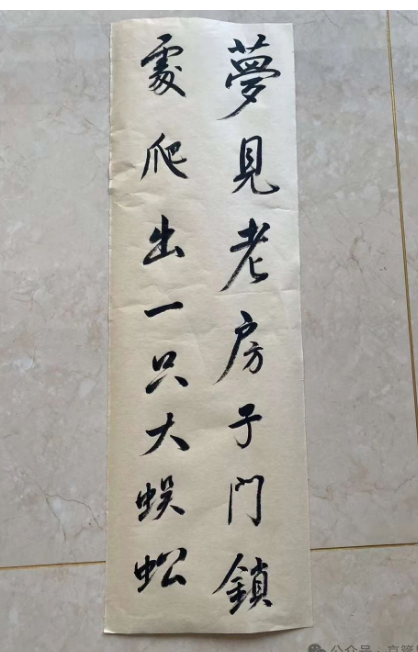 夢見老房子門鎖
處爬出一只大蜈蚣
公众号